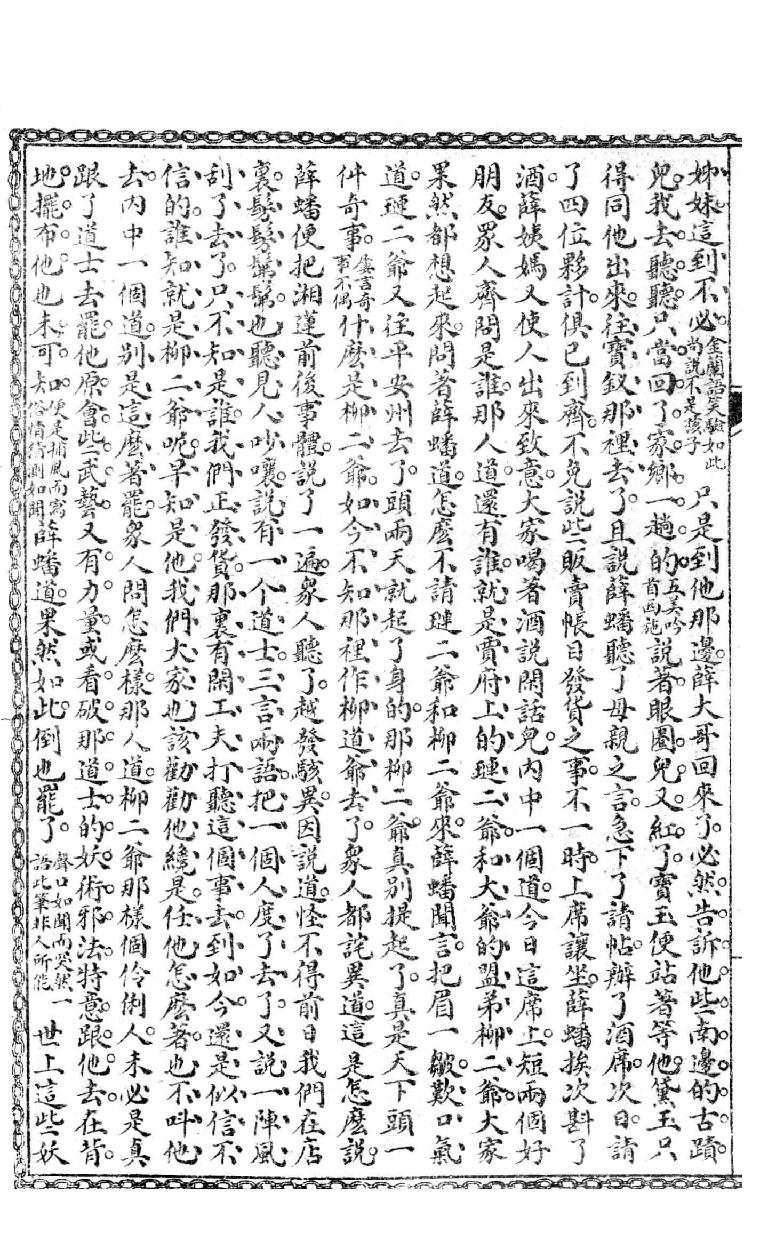 姊妹這到不必金蘭語笑驗如此尚說不是孩子只是到他那邊薛大哥回來了必然告訴他些南邊的古蹟
兒我去聽聽只當回了家鄉一趟的五美吟首西施說著眼圈兒又紅了寶玉便站著等他黛玉只
得同他出來往寶釵那裡去了且說薛蟠聽了母親之言急下了請帖辦了酒席次日請
了四位夥計俱已到齊不免說些販賣帳目發貨之事不一時上席讓坐薛蟠挨次斟了
酒薛姨媽又使人出來致意大家喝著酒說閑話兒內中一個道今日這席上短兩個好
朋友眾人齊問是誰那人道還有誰就是賈府上的璉二爺和大爺的盟弟柳二爺大家
果然都想起來問著薛蟠道怎麼不請璉二爺和柳二爺來薛蟠聞言把眉一皺歎口氣
道璉二爺又往平安州去了頭兩天就起了身的那柳二爺真別提起了真是天下頭一
件奇事屢言奇事不偶什麼是柳二爺如今不知那裡作柳道爺去了眾人都詫異道這是怎麼說
薛蟠便把湘蓮前後事體說了一遍眾人聽了越發駭異因說道怪不得前日我們在店
裏髣髣髴髴也聽見人吵嚷說有一个道士三言兩語把一個人度了去了又說一陣風
刮了去了只不知是誰我們正發貨那裏有閑工夫打聽這個事去到如今還是似信不
信的誰知就是柳二爺呢早知是他我們大家也該勸勸他纔是任他怎麼著也不叫他
去內中一個道別是這麼著罷眾人問怎麼樣那人道柳二爺那樣個伶俐人未必是真
跟了道士去罷他原會些武藝又有力量或看破那道士的妖術邪法特意跟他去在背
地擺布他也未可知便是捕風而寫俗情猜測如聞薛蟠道果然如此倒也罷了聲口如聞而突然一語此筆非人所能世上這些妖